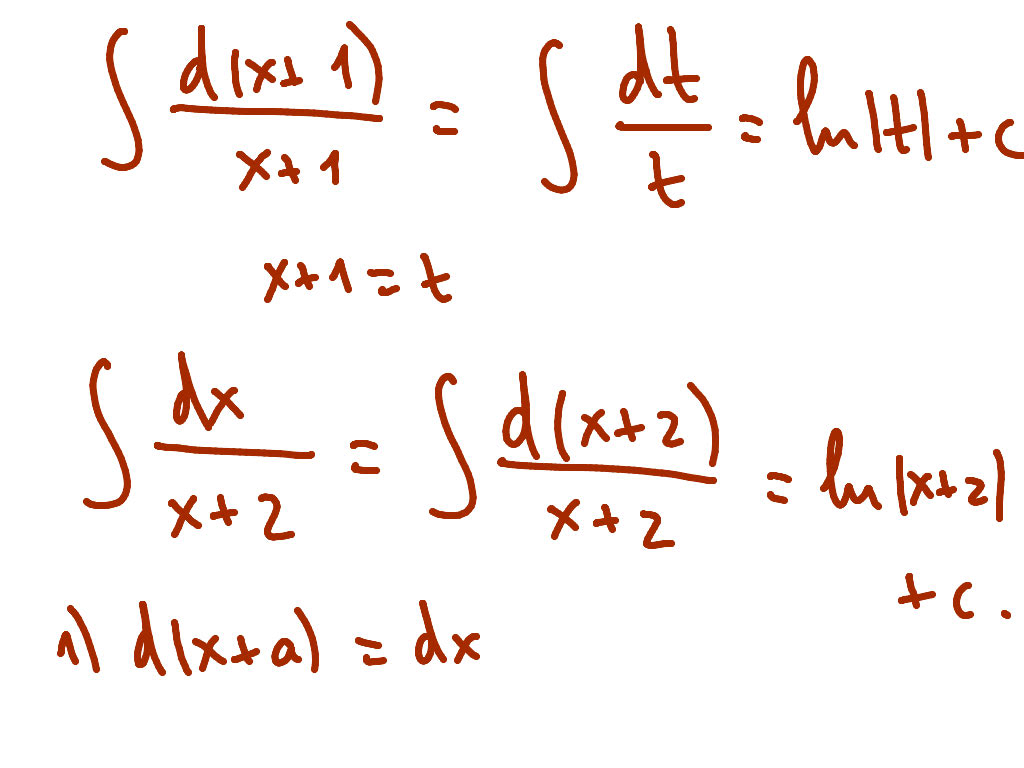 ∫ d(x+1)/(x+1) = ∫ dt/t = ln|t| + c
x+1 = t
∫ dx/(x+2) = ∫ d(x+2)/(x+2) = ln|x+2|
+ c.
1) d(x+a) = dx